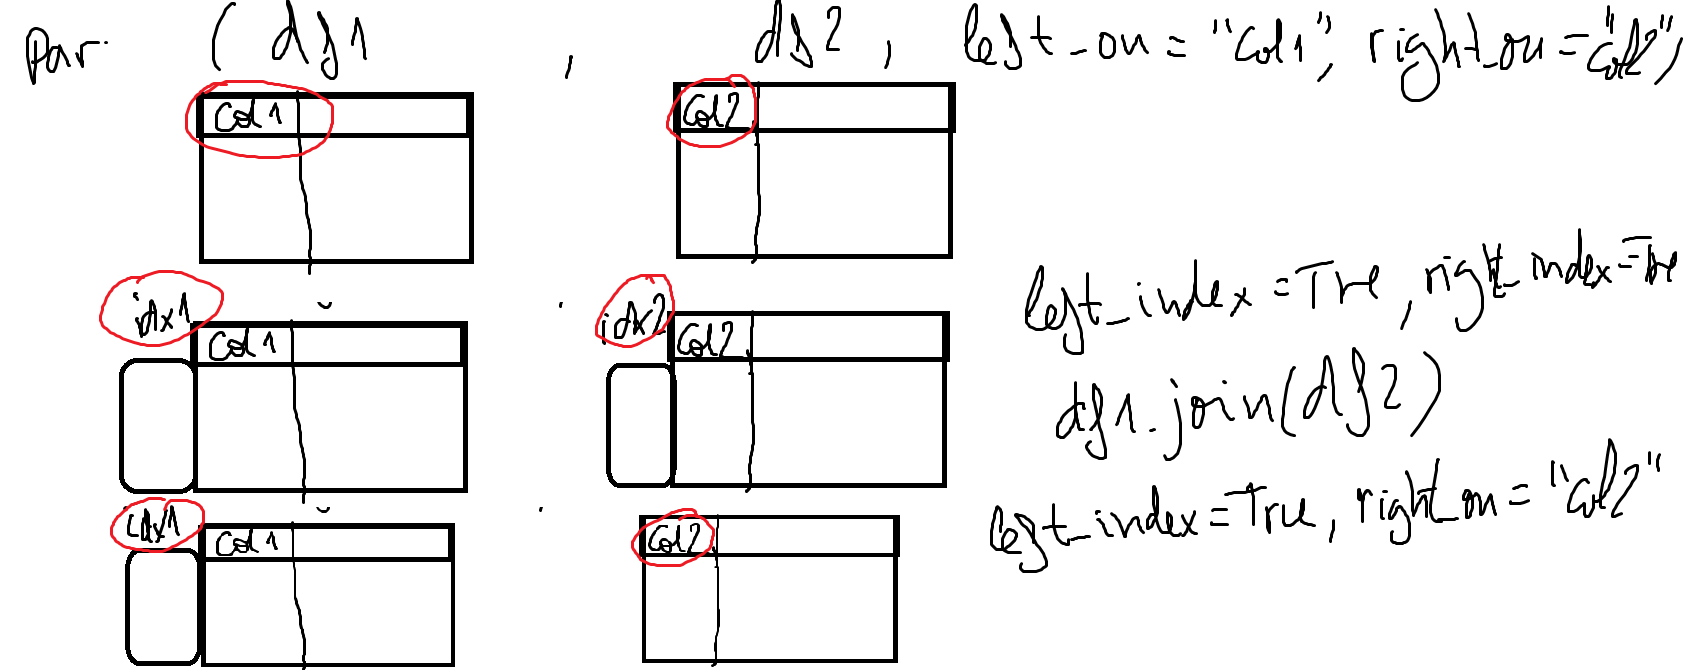 par (df1 , df2, left_on = "col1", right_on = "col2",
col1 col2
idx1 idx2 left_index = Tre, right_index = Tre
col1 col2
df1.join(df2)
idx1 col1 col2 left_index = True, right_on = "col2"